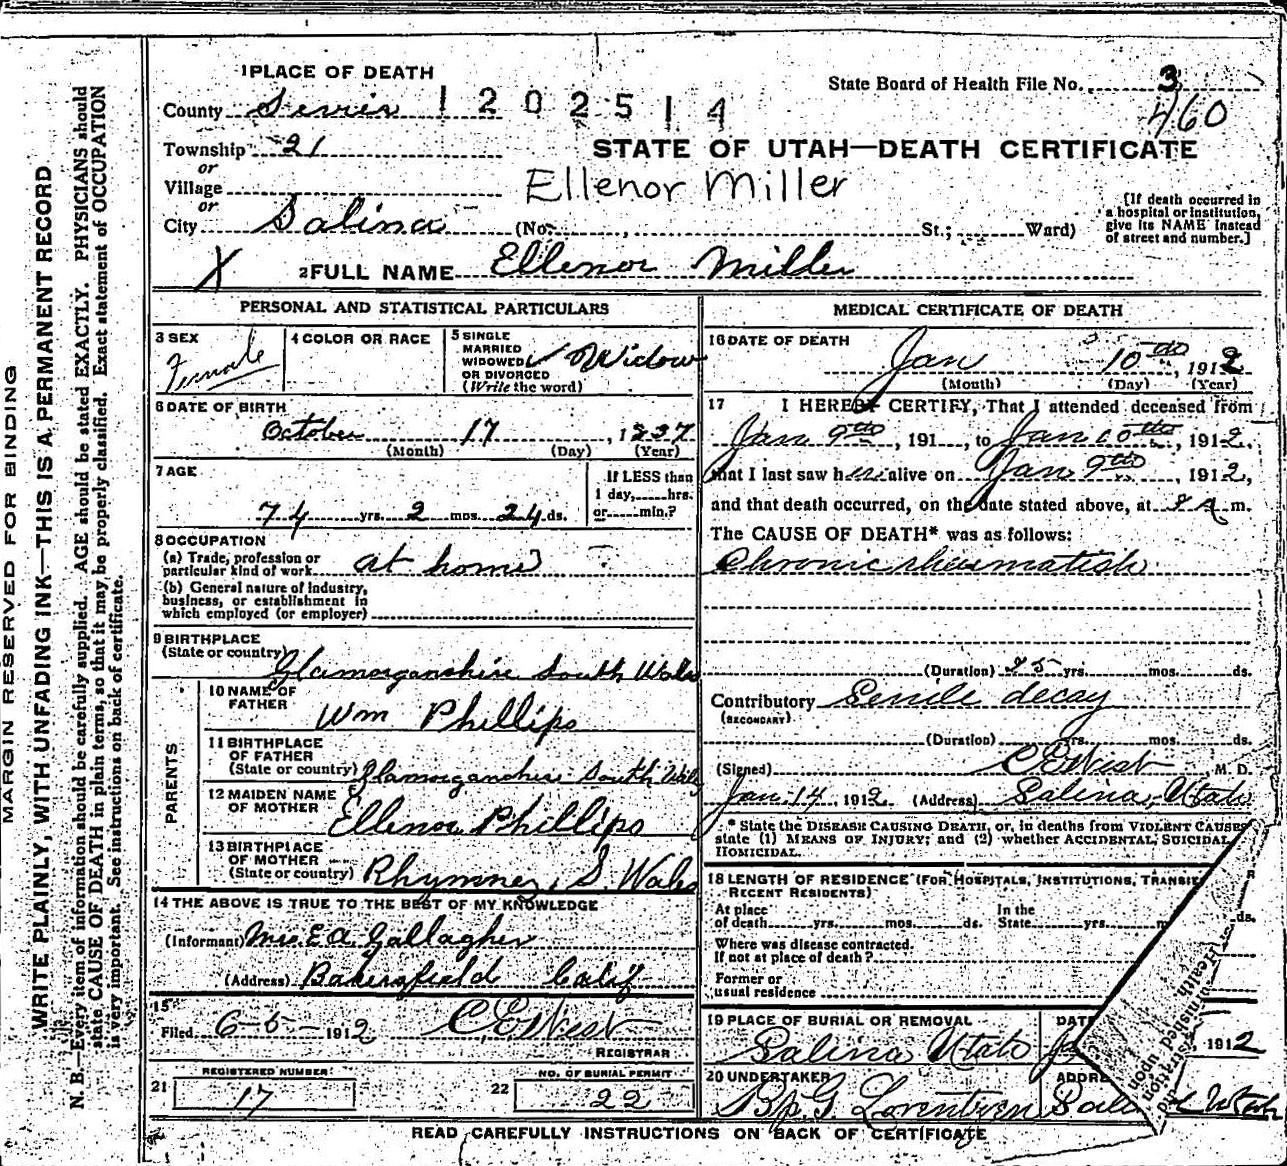 1 PLACE OF DEATH
State Board of Health File No. 3
County Sevier 1202514
460
Township 21
STATE OF UTAH—DEATH CERTIFICATE
or
Village
Ellenor Miller
or
City Salina (No. , St.; Ward)
[If death occurred in a hospital or institution, give its NAME instead of street and number.]
X 2 FULL NAME Ellenor Miller
PERSONAL AND STATISTICAL PARTICULARS
3 SEX Female
4 COLOR OR RACE
5 SINGLE MARRIED WIDOWED OR DIVORCED (Write the word) Widow
6 DATE OF BIRTH
October 17, 1837
(Month) (Day) (Year)
7 AGE
If LESS than 1 day, hrs. or min.?
74 yrs. 2 mos. 24 ds.
8 OCCUPATION
(a) Trade, profession or particular kind of work at home
(b) General nature of industry, business, or establishment in which employed (or employer)
9 BIRTHPLACE
(State or country) Glamorganshire South Wales
PARENTS
10 NAME OF FATHER Wm Phillips
11 BIRTHPLACE OF FATHER (State or country) Glamorganshire South Wales
12 MAIDEN NAME OF MOTHER Ellenor Phillips
13 BIRTHPLACE OF MOTHER (State or country) Rhymney, S. Wales
14 THE ABOVE IS TRUE TO THE BEST OF MY KNOWLEDGE
(Informant) Mrs. E A Gallagher
(Address) Bakersfield Calif
15
Filed 6-5-1912 C E West
REGISTRAR
21 REGISTERED NUMBER 17
22 NO. OF BURIAL PERMIT 22
MEDICAL CERTIFICATE OF DEATH
16 DATE OF DEATH
Jan 10th, 1912
(Month) (Day) (Year)
17 I HEREBY CERTIFY, That I attended deceased from
Jan 9th, 191 , to Jan 10th, 1912,
that I last saw her alive on Jan 9th, 1912,
and that death occurred, on the date stated above, at 8 A m.
The CAUSE OF DEATH* was as follows:
Chronic rheumatish
(Duration) 25 yrs. mos. ds.
Contributory Senile decay
(SECONDARY)
(Duration) yrs. mos. ds.
(Signed) C E West, M. D.
Jan 14, 1912 (Address) Salina, Utah
* State the DISEASE CAUSING DEATH, or, in deaths from VIOLENT CAUSES
state (1) MEANS OF INJURY; and (2) whether ACCIDENTAL, SUICIDAL,
HOMICIDAL.
18 LENGTH OF RESIDENCE (FOR HOSPITALS, INSTITUTIONS, TRANSIE
RECENT RESIDENTS)
At place of death yrs. mos. ds. In the State yrs. m ds.
Where was disease contracted.
If not at place of death?
Former or
usual residence
19 PLACE OF BURIAL OR REMOVAL DATE
Salina Utah 1912
20 UNDERTAKER ADDRE
Bp. G Lorentzen Utah
READ CAREFULLY INSTRUCTIONS ON BACK OF CERTIFICATE
MARGIN RESERVED FOR BINDING
WRITE PLAINLY, WITH UNFADING INK—THIS IS A PERMANENT RECORD
N. B.—Every item of information should be carefully supplied. AGE should be stated EXACTLY. PHYSICIANS should
state CAUSE OF DEATH in plain terms, so that it may be properly classified. Exact statement of OCCUPATION
is very important. See instructions on back of certificate.